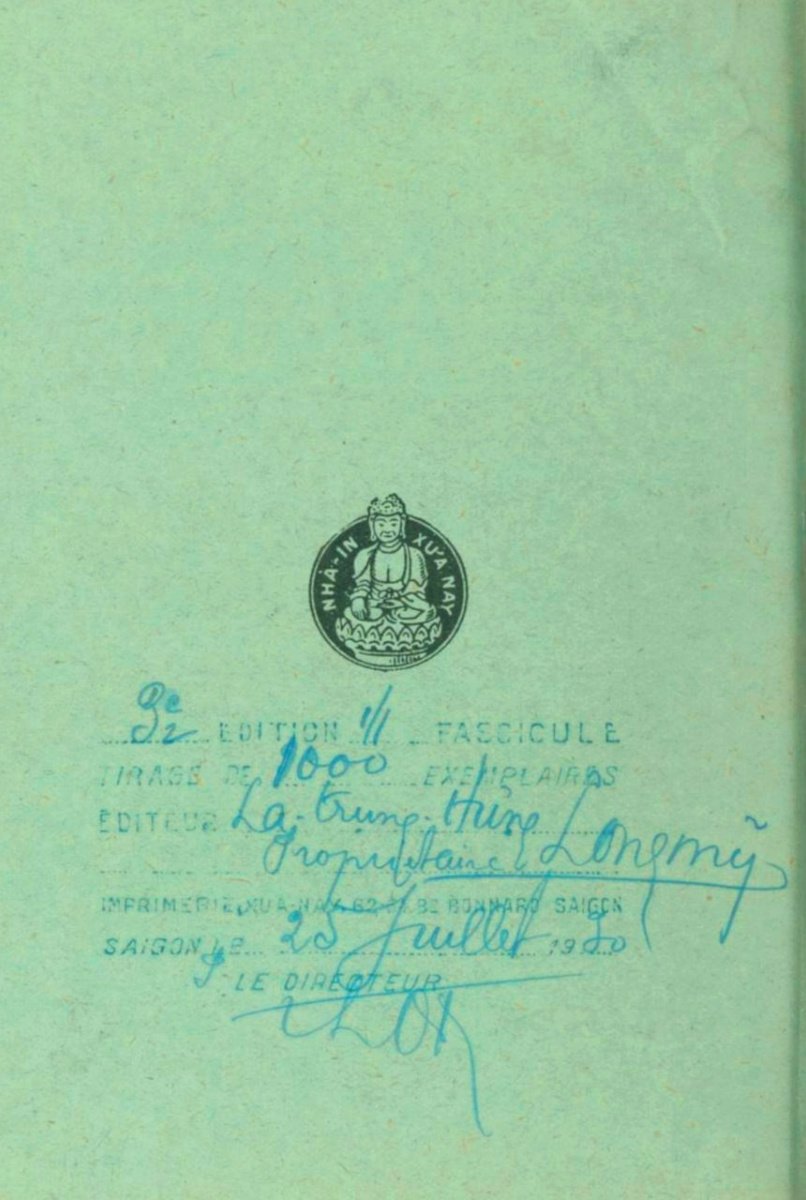 NHÀ-IN XƯA NAY
3e EDITION 1/1 FASCICULE
TIRAGE DE 1000 EXEMPLAIRES
EDITEUR La-trung-Hưng
Propriétaire Longmỹ
IMPRIMERIE XUA-NAY 62 BD BONNARD SAIGON
SAIGON LE 25 Juillet 1930
P LE DIRECTEUR